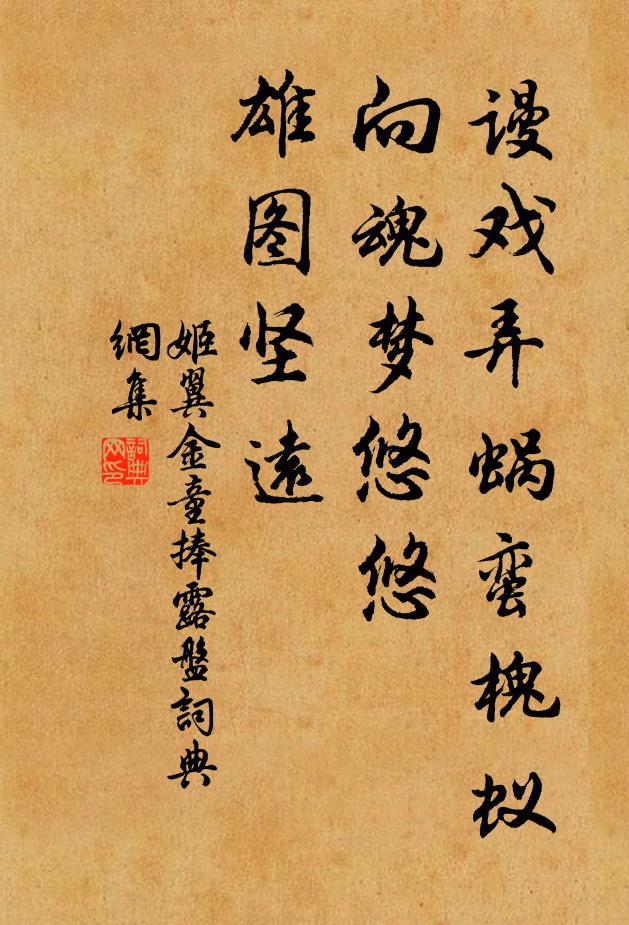 谩戏弄蜗蛮槐蚁
向魂梦悠悠
雄图坚遠
姬翼金童捧露盤詞典
網集
詞典
网印